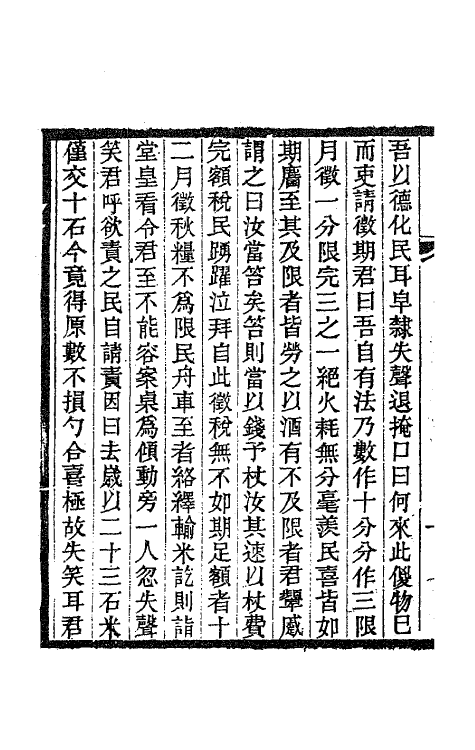 吾以德化民耳皁隸失聲退掩口曰何來此儍物已
而吏請徵期君曰吾自有法乃數作十分分作三限
月徵一分限完三之一絕火耗無分毫羨民喜皆如
期麕至其及限者皆勞之以酒有不及限者君顰慼
謂之曰汝當笞矣笞則當以錢予杖汝其速以杖費
完額稅民踴躍泣拜自此徵稅無不如期足額者十
二月徵秋糧不爲限民舟車至者絡繹輸米訖則詣
堂皇看令君至不能容案桌爲傾動旁一人忽失聲
笑君呼欲責之民自請責因曰去歲以二十三石米
僅交十石今竟得原數不損勺合喜極故失笑耳君